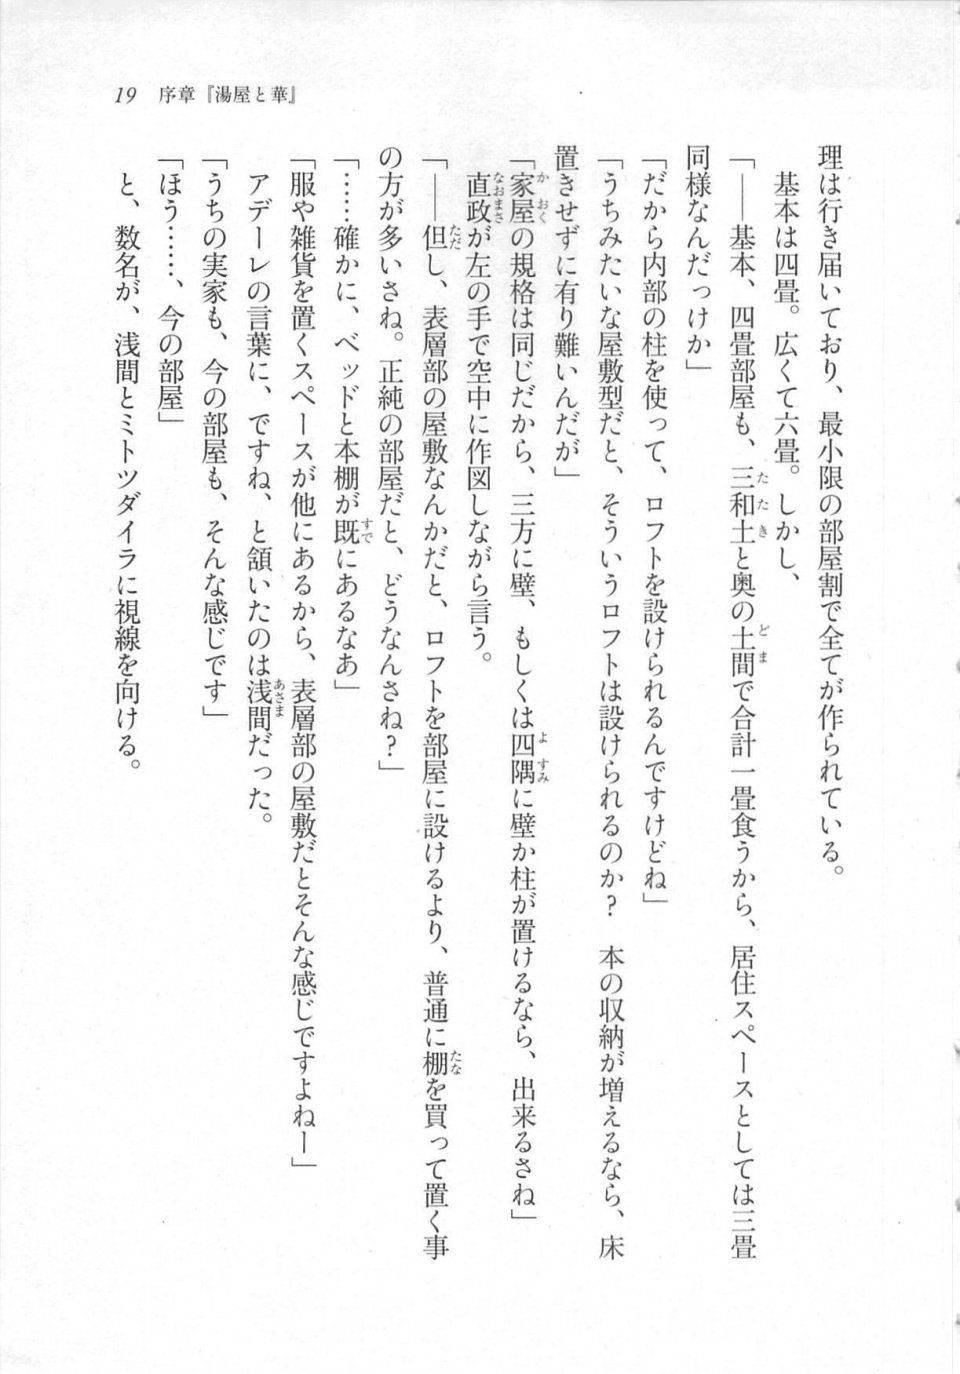 19　序章『湯屋と華』
理は行き届いており、最小限の部屋割で全てが作られている。
　基本は四畳。広くて六畳。しかし、
「――基本、四畳部屋も、三和土と奥の土間で合計一畳食うから、居住スペースとしては三畳
同様なんだっけか」
「だから内部の柱を使って、ロフトを設けられるんですけどね」
「うちみたいな屋敷型だと、そういうロフトは設けられるのか？　本の収納が増えるなら、床
置きせずに有り難いんだが」
「家屋の規格は同じだから、三方に壁、もしくは四隅に壁か柱が置けるなら、出来るさね」
　直政が左の手で空中に作図しながら言う。
「――但し、表層部の屋敷なんかだと、ロフトを部屋に設けるより、普通に棚を買って置く事
の方が多いさね。正純の部屋だと、どうなんさね？」
「……確かに、ベッドと本棚が既にあるなあ」
「服や雑貨を置くスペースが他にあるから、表層部の屋敷だとそんな感じですよねー」
　アデーレの言葉に、ですね、と頷いたのは浅間だった。
「うちの実家も、今の部屋も、そんな感じです」
「ほう……、今の部屋」
　と、数名が、浅間とミトツダイラに視線を向ける。